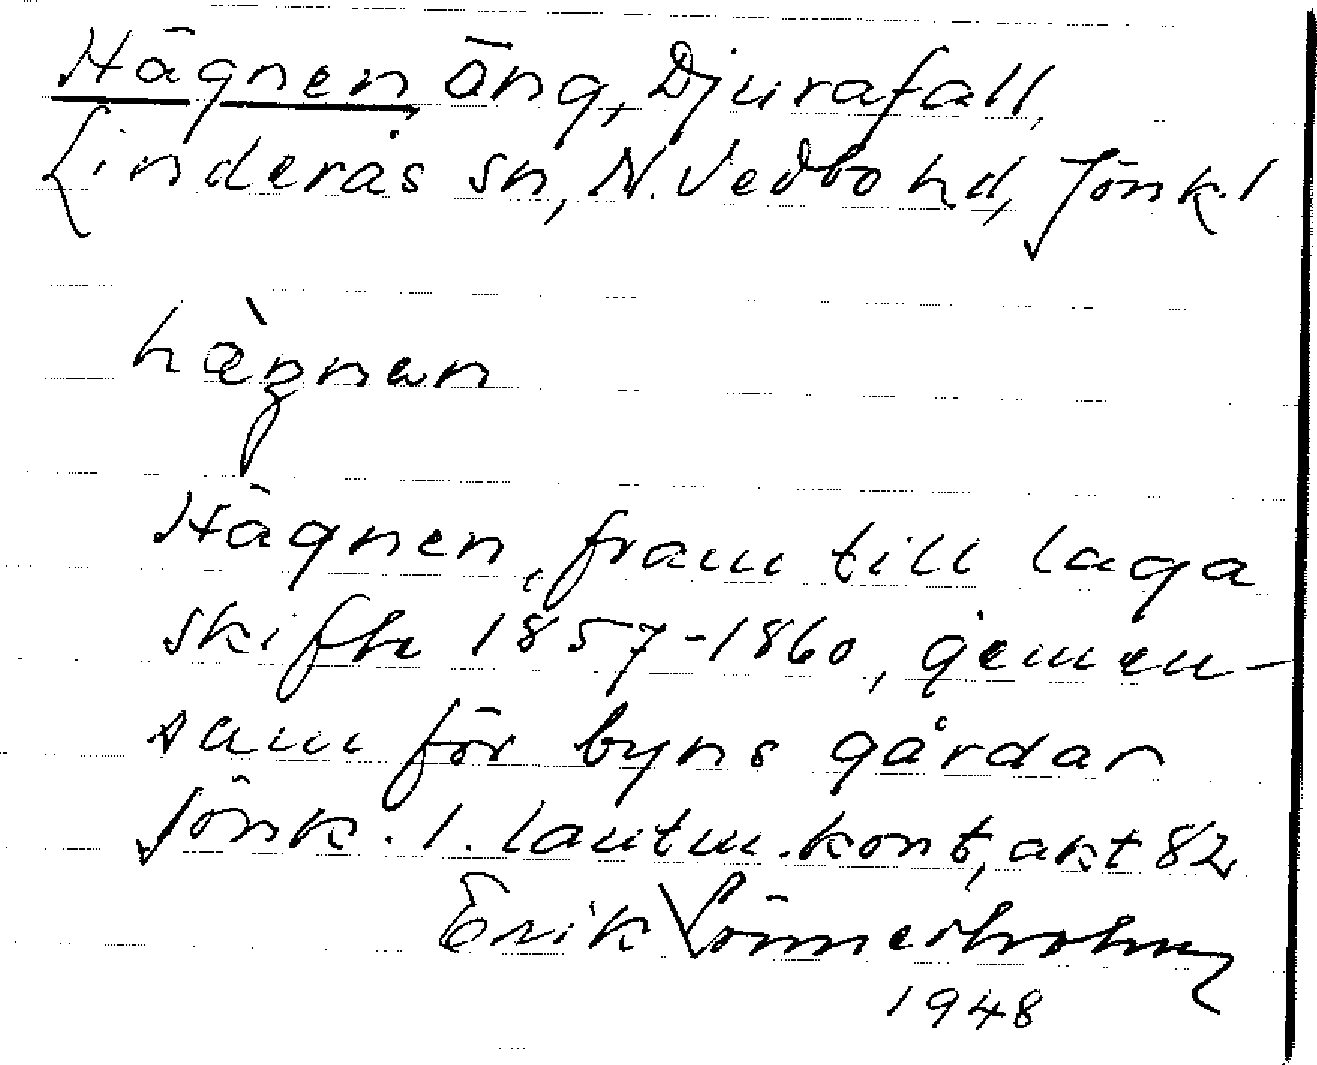 Hägnen äng, Djurafall,
Linderås sn, N. Vedbo hd, Jönk. l
hæ̀gnan
Hägnen, fram till laga
skifte 1857-1860, gemen-
sam för byns gårdar
Jönk. l. lantm. kont, akt 82
Erik Lönnerholm
1948